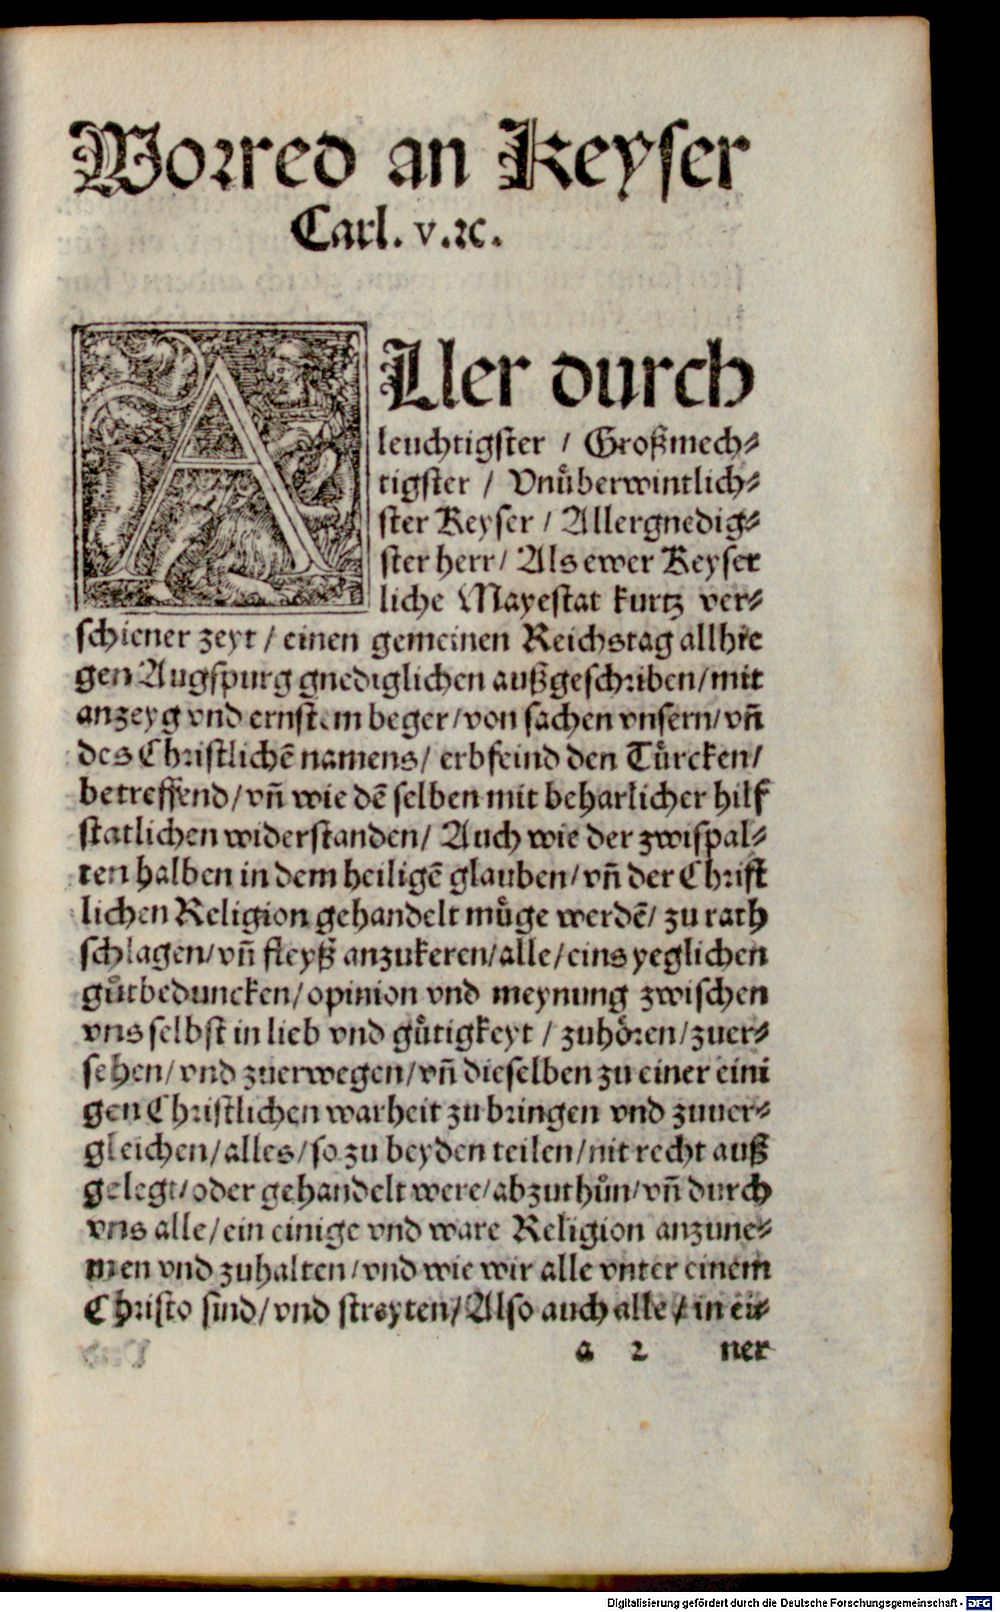 Vorred an Keyser
Carl. v. ꝛc.
ALler durch
leuchtigster / Großmech⸗
tigster / Vnuͤberwintlich⸗
ster Keyser / Allergnedig⸗
ster herr / Als ewer Keyser
liche Mayestat kurtz ver⸗
schiener zeyt / einen gemeinen Reichstag allhie
gen Augspurg gnediglichen außgeschriben / mit
anzeyg vnd ernstem beger / von sachen vnsern / vñ
des Christlichẽ namens / erbfeind den Tuͤrcken /
betreffend / vñ wie dẽ selben mit beharlicher hilf
statlichen widerstanden / Auch wie der zwispal⸗
ten halben in dem heiligẽ glauben / vñ der Christ
lichen Religion gehandelt muͤge werdẽ / zu rath
schlagen / vñ fleyß anzukeren / alle / eins yeglichen
guͦtbeduncken / opinion vnd meynung zwischen
vns selbst in lieb vnd guͤtigkeyt / zuhoͤren / zuer⸗
sehen / vnd zuerwegen / vñ dieselben zu einer eini
gen Christlichen warheit zu bringen vnd zuuer⸗
gleichen / alles / so zu beyden teilen / nit recht auß
gelegt / oder gehandelt were / abzuthuͦn / vñ durch
vns alle / ein einige vnd ware Religion anzune⸗
men vnd zuhalten / vnd wie wir alle vnter einem
Christo sind / vnd streyten / Also auch alle / in ei⸗
a 2 ner
Digitalisierung gefördert durch die Deutsche Forschungsgemeinschaft - DFG